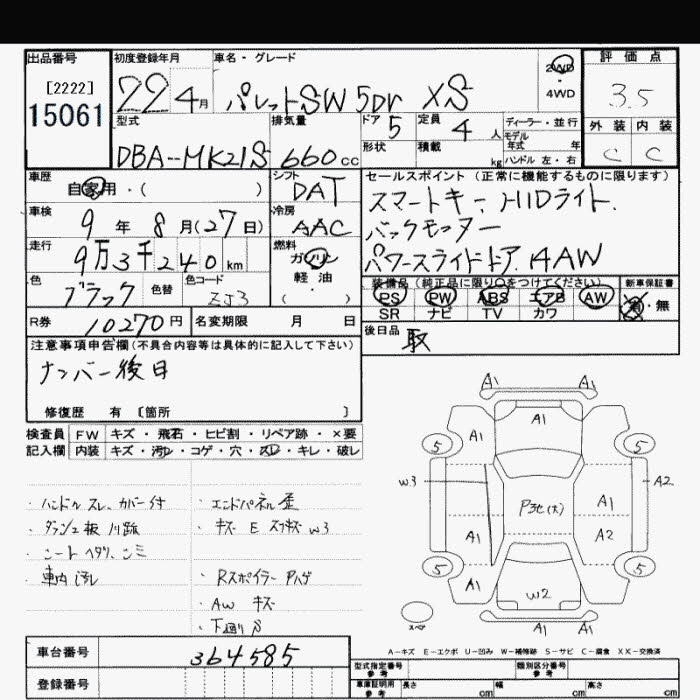 出品番号
[2222]
15061
初度登録年月
22年 4月
車名・グレード
パレットSW 5Dr XS
2WD
・
4WD
評価点
3.5
外装 内装
C C
型式
DBA-MK21S
排気量
660cc
ドア 5
形状
定員 4人
積載 kg
ディーラー・並行
モデル年式 年
ハンドル 左・右
車歴
自家用・( )
シフト
DAT
車検
9年 8月(27日)
冷房
AAC
走行
9万3千240km
燃料
ガソリン
軽油
色
ブラック
色替
色コード
ZJ3
R券 10270円
名変期限 月 日
セールスポイント (正常に機能するものに限ります)
スマートキー、HIDライト、
バックモニター
パワースライドドア、AAW
装備品(純正品に限り○をつけてください)
新車保証書
PS PW ABS エアB AW
SR ナビ TV カワ
有・無
後日品 取
注意事項申告欄(不具合内容等は具体的に記入して下さい)
ナンバー後日
修復歴 有 〔箇所 〕
検査員 FW キズ・飛石・ヒビ割・リペア跡・×要
記入欄 内装 キズ・汚レ・コゲ・穴・スレ・キレ・破レ
・ハンドルスレ、カバー付
・ダッシュ板
・シートヘタリ、シミ
・車内汚レ
・エンドパネル歪
・キズ E W3
・Rスポイラー ハゲ
・AW キズ
・下廻りS
A1 A1
A1
A1
5 5
W3 A2
P3化(大)
A1
A1 A2
5 5
A1
W2
A1 A1
スペア
A-キズ E-エクボ U-凹み W-補修跡 S-サビ C-腐食 XX-交換済
車台番号 364585
登録番号
型式指定番号 参考
類別区分番号 参考
車庫証明用 参考 長さ cm 幅 cm 高さ cm